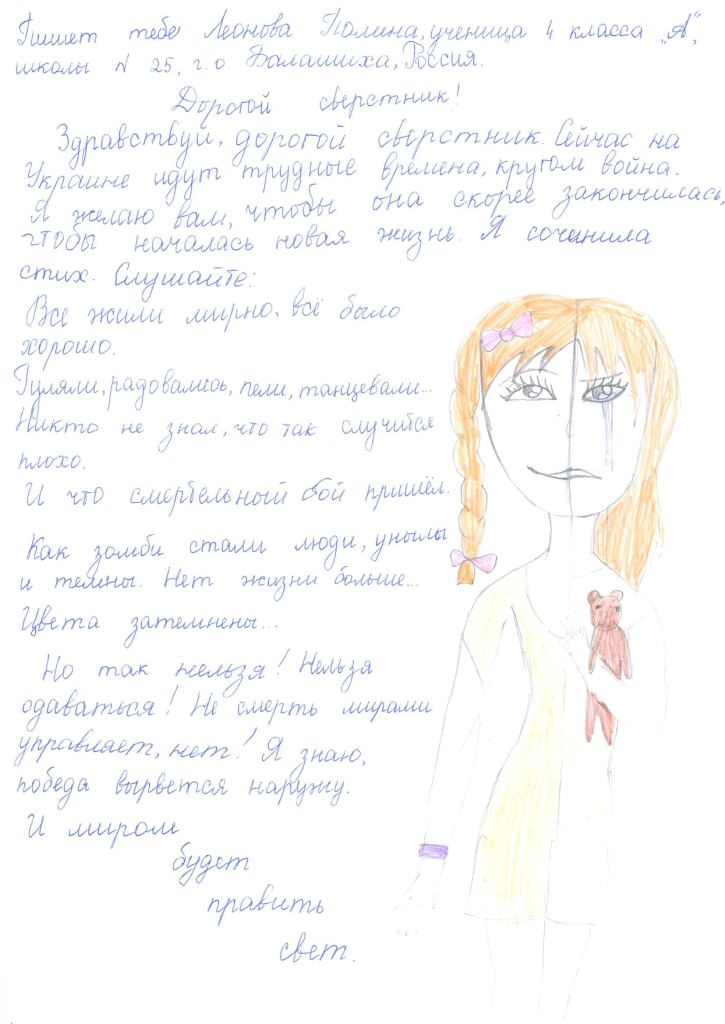 Пишет тебе Леонова Полина, ученица 4 класса "А",
школы № 25, г.о Балашиха, Россия.
Дорогой сверстник!
Здравствуй, дорогой сверстник. Сейчас на
Украине идут трудные времена, кругом война.
Я желаю вам, чтобы она скорее закончилась,
чтобы началась новая жизнь. Я сочинила
стих. Слушайте:
Все жили мирно. всё было
хорошо.
Гуляли, радовались, пели, танцевали...
Никто не знал, что так случится
плохо.
И что смертельный бой пришёл.
Как зомби стали люди, унылы
и темны. Нет жизни больше...
Цвета затемнены...
Но так нельзя! Нельзя
сдаваться! Не смерть мирами
управляет, нет! Я знаю,
победа вырвется наружу.
И миром
будет
править
свет.